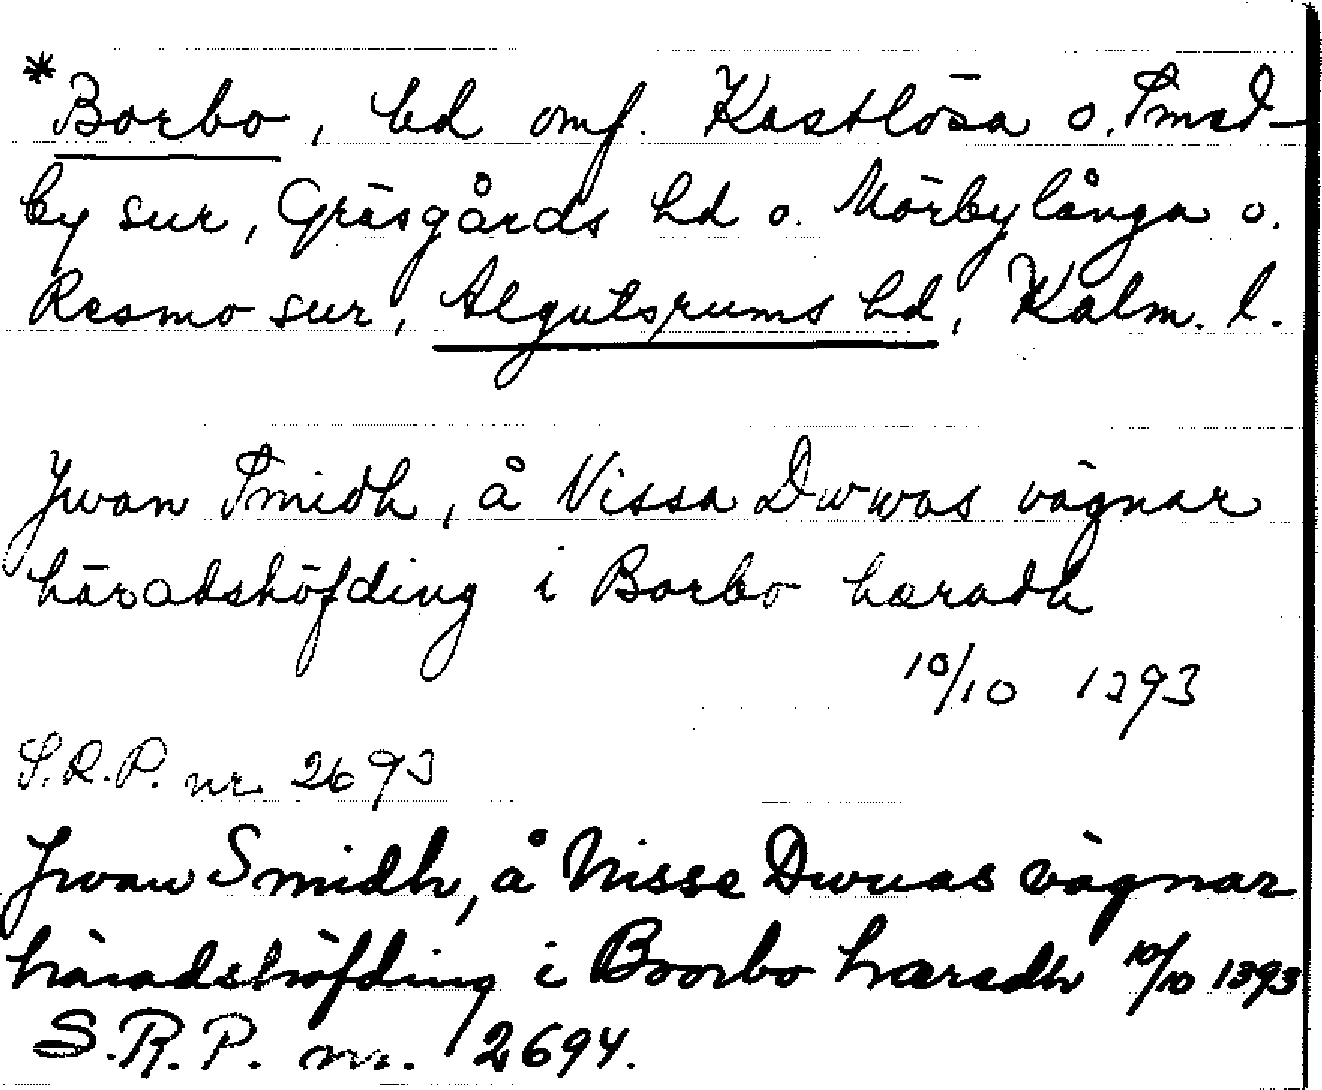 *Borbo, hd omf. Kastlösa o. Smed-
by snr, Gräsgårds hd o. Mörbylånga o.
Resmo snr, Algutsrums hd, Kalm. l.
Jwan Smidh, å Nissa Dwwas vägnar
häradshöfding i Borbo hæradh
10/10 1393
S.R.P. nr. 2693
Jwan Smidh, å Nisse Dwuas vägnar
häradshöfding i Boorbo hæredh 10/10 1393
S.R.P. nr. 2694.